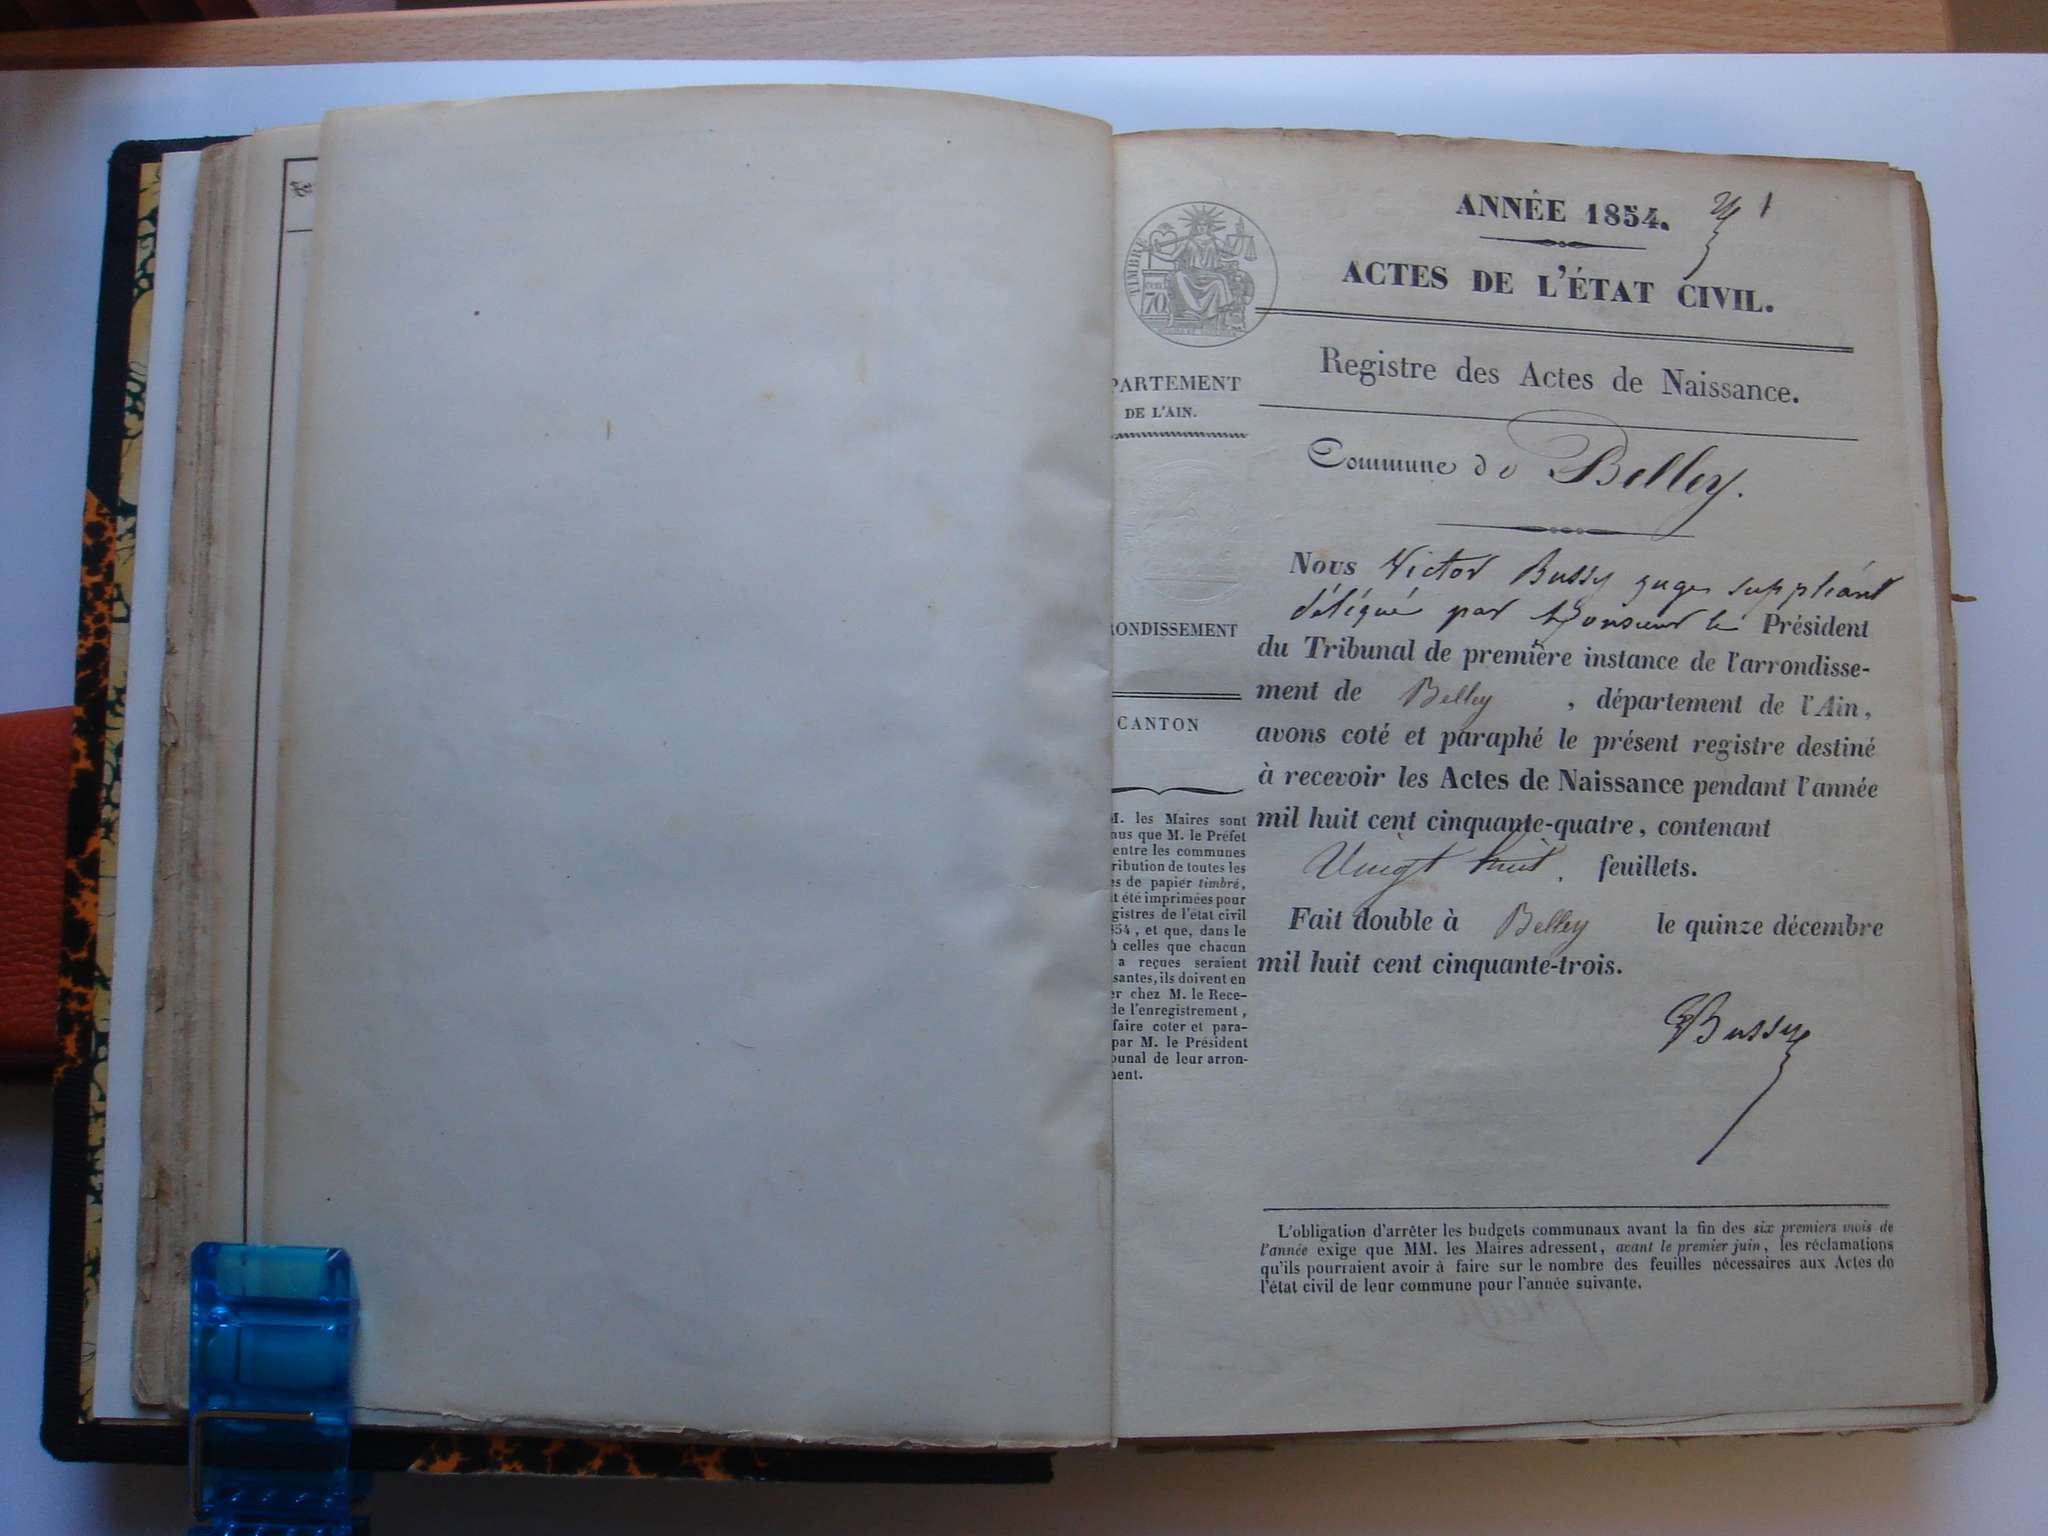 ANNÉE 1854.
1
ACTES DE L'ÉTAT CIVIL.
TIMBRE
70
Registre des Actes de Naissance.
PARTEMENT
DE L'AIN.
Commune de Belley.
RONDISSEMENT
CANTON
M. les Maires sont
nus que M. le Préfet
entre les communes
ribution de toutes les
es de papier timbré,
t été imprimées pour
gistres de l'état civil
854, et que, dans le
à celles que chacun
a reçues seraient
santes, ils doivent en
er chez M. le Rece-
de l'enregistrement,
faire coter et para-
par M. le Président
bunal de leur arron-
ment.
Nous Victor Bussy juge suppléant
délégué par Monsieur le Président
du Tribunal de première instance de l'arrondisse-
ment de Belley, département de l'Ain,
avons coté et paraphé le présent registre destiné
à recevoir les Actes de Naissance pendant l'année
mil huit cent cinquante-quatre, contenant
Vingt huit. feuillets.
Fait double à Belley le quinze décembre
mil huit cent cinquante-trois.
Bussy
L'obligation d'arrêter les budgets communaux avant la fin des six premiers mois de
l'année exige que MM. les Maires adressent, avant le premier juin, les réclamations
qu'ils pourraient avoir à faire sur le nombre des feuilles nécessaires aux Actes de
l'état civil de leur commune pour l'année suivante.